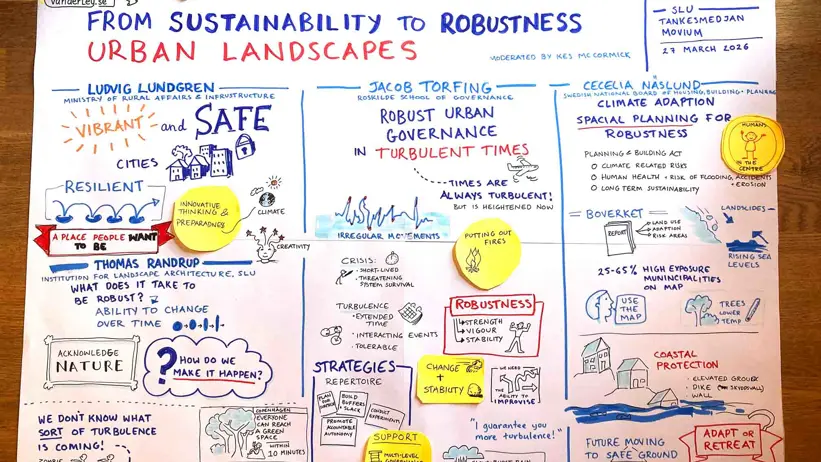 vanderley.se
FROM SUSTAINABILITY TO ROBUSTNESS
URBAN LANDSCAPES
MODERATED BY KES MCCORMICK
SLU
TANKESMEDJAN
MOVIUM
27 MARCH 2026
LUDVIG LUNDGREN
MINISTRY OF RURAL AFFAIRS & INFRUSTRUCTURE
VIBRANT and SAFE
CITIES
RESILIENT
INNOVATIVE
THINKING &
PREPAREDNESS
CLIMATE
CREATIVITY
A PLACE PEOPLE WANT
TO BE
THOMAS RANDRUP
INSTITUTION FOR LANDSCAPE ARCHITECTURE, SLU
WHAT DOES IT TAKE TO
BE ROBUST?
ABILITY TO CHANGE
OVER TIME
ACKNOWLEDGE
NATURE
? HOW DO WE
MAKE IT HAPPEN?
WE DON'T KNOW WHAT
SORT OF TURBULENCE
IS COMING!
ZOMBIE
COPENHAGEN
EVERYONE
CAN REACH
A GREEN
SPACE
WITHIN
10 MINUTES
JACOB TORFING
ROSKILDE SCHOOL OF GOVERNANCE
ROBUST URBAN
GOVERNANCE
IN TURBULENT TIMES
TIMES ARE
ALWAYS TURBULENT!
BUT IS HEIGHTENED NOW
IRREGULAR MOVEMENTS
PUTTING OUT
FIRES
CRISIS:
SHORT-LIVED
THREATENING
SYSTEM SURVIVAL
TURBULENCE
EXTENDED
TIME
INTERACTING EVENTS
TOLERABLE
ROBUSTNESS
STRENGTH
VIGOUR
STABILITY
STRATEGIES
REPERTOIRE
PLAN FOR
BUILD
BUFFERS
+ SLACK
CONDUCT
EXPERIMENTS
PROMOTE
ACCOUNTABLE
AUTONOMY
CHANGE
+
STABILITY
WE NEED
THE ABILITY TO
IMPROVISE
SUPPORT
MULTI-LEVEL
GOVERNANCE
"I guarantee you
more turbulence!"
CECELIA NÄSLUND
SWEDISH NATIONAL BOARD OF HOUSING, BUILDING + PLANNING
CLIMATE ADAPTION
SPACIAL PLANNING FOR
ROBUSTNESS
HUMANS
IN THE
CENTRE
PLANNING & BUILDING ACT
CLIMATE RELATED RISKS
HUMAN HEALTH + RISK OF FLOODING, ACCIDENTS
+ EROSION
LONG TERM SUSTAINABILITY
BOVERKET
REPORT
LAND USE
ADAPTION
RISK AREAS
LANDSLIDES
RISING SEA
LEVELS
25-65% HIGH EXPOSURE
MUNINCIPALITIES
ON MAP
USE
THE
MAP
TREES
LOWER
TEMP
COASTAL
PROTECTION
ELEVATED GROUND
DIKE
WALL
FUTURE MOVING
TO SAFE GROUND
ADAPT OR
RETREAT